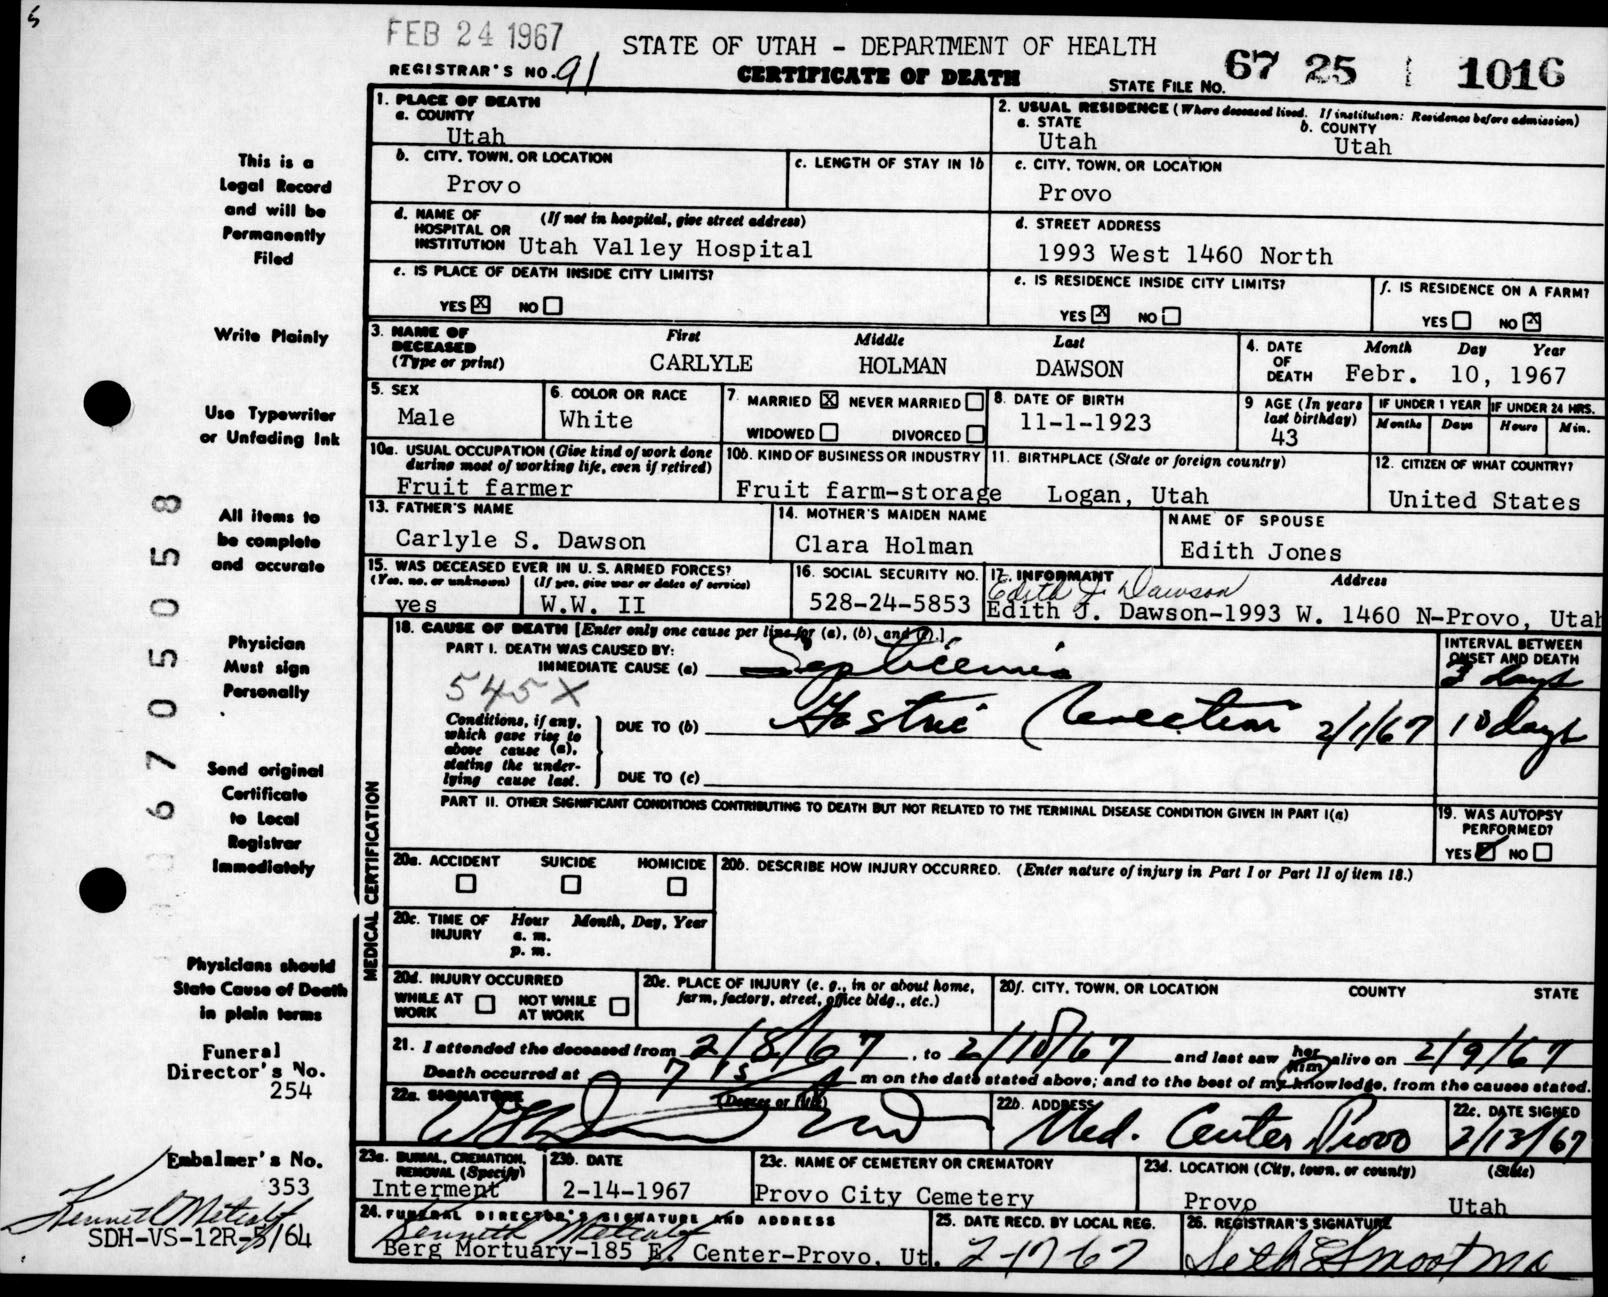 5
FEB 24 1967
STATE OF UTAH - DEPARTMENT OF HEALTH
REGISTRAR'S NO. 91
CERTIFICATE OF DEATH
STATE FILE NO. 67 25 1016
1. PLACE OF DEATH
a. COUNTY
Utah
2. USUAL RESIDENCE (Where deceased lived. If institution: Residence before admission)
a. STATE
Utah
b. COUNTY
Utah
b. CITY, TOWN, OR LOCATION
Provo
c. LENGTH OF STAY IN 1b
c. CITY, TOWN, OR LOCATION
Provo
d. NAME OF HOSPITAL OR INSTITUTION (If not in hospital, give street address)
Utah Valley Hospital
d. STREET ADDRESS
1993 West 1460 North
e. IS PLACE OF DEATH INSIDE CITY LIMITS?
YES X NO
e. IS RESIDENCE INSIDE CITY LIMITS?
YES X NO
f. IS RESIDENCE ON A FARM?
YES NO X
3. NAME OF DECEASED (Type or print)
First Middle Last
CARLYLE HOLMAN DAWSON
4. DATE OF DEATH
Month Day Year
Febr. 10, 1967
5. SEX
Male
6. COLOR OR RACE
White
7. MARRIED X NEVER MARRIED
WIDOWED DIVORCED
8. DATE OF BIRTH
11-1-1923
9 AGE (In years last birthday)
43
IF UNDER 1 YEAR
Months Days
IF UNDER 24 HRS.
Hours Min.
10a. USUAL OCCUPATION (Give kind of work done during most of working life, even if retired)
Fruit farmer
10b. KIND OF BUSINESS OR INDUSTRY
Fruit farm-storage
11. BIRTHPLACE (State or foreign country)
Logan, Utah
12. CITIZEN OF WHAT COUNTRY?
United States
13. FATHER'S NAME
Carlyle S. Dawson
14. MOTHER'S MAIDEN NAME
Clara Holman
NAME OF SPOUSE
Edith Jones
15. WAS DECEASED EVER IN U. S. ARMED FORCES?
(Yes, no, or unknown) (If yes, give war or dates of service)
yes W.W. II
16. SOCIAL SECURITY NO.
528-24-5853
17. INFORMANT Address
Edith J. Dawson
Edith J. Dawson-1993 W. 1460 N-Provo, Utah
18. CAUSE OF DEATH [Enter only one cause per line for (a), (b), and (c).]
PART I. DEATH WAS CAUSED BY:
IMMEDIATE CAUSE (a) Septicemia
INTERVAL BETWEEN ONSET AND DEATH
3 days
545X
Conditions, if any, which gave rise to above cause (a), stating the underlying cause last.
DUE TO (b) Gastric Resection 2/1/67 10 days
DUE TO (c)
PART II. OTHER SIGNIFICANT CONDITIONS CONTRIBUTING TO DEATH BUT NOT RELATED TO THE TERMINAL DISEASE CONDITION GIVEN IN PART I(a)
19. WAS AUTOPSY PERFORMED?
YES NO
MEDICAL CERTIFICATION
20a. ACCIDENT SUICIDE HOMICIDE
20b. DESCRIBE HOW INJURY OCCURRED. (Enter nature of injury in Part I or Part II of item 18.)
20c. TIME OF INJURY
Hour Month, Day, Year
a. m.
p. m.
20d. INJURY OCCURRED
WHILE AT WORK NOT WHILE AT WORK
20e. PLACE OF INJURY (e. g., in or about home, farm, factory, street, office bldg., etc.)
20f. CITY, TOWN, OR LOCATION COUNTY STATE
21. I attended the deceased from 2/8/67, to 2/10/67 and last saw her him alive on 2/9/67
Death occurred at 7 15 A m on the date stated above; and to the best of my knowledge, from the causes stated.
22a. SIGNATURE (Degree or title)
22b. ADDRESS
Med. Center Provo
22c. DATE SIGNED
2/13/67
23a. BURIAL, CREMATION, REMOVAL (Specify)
Interment
23b. DATE
2-14-1967
23c. NAME OF CEMETERY OR CREMATORY
Provo City Cemetery
23d. LOCATION (City, town, or county) (State)
Provo Utah
24. FUNERAL DIRECTOR'S SIGNATURE AND ADDRESS
Kenneth Metcalf
Berg Mortuary-185 E. Center-Provo, Ut.
25. DATE RECD. BY LOCAL REG.
2-17-67
26. REGISTRAR'S SIGNATURE
Seth E Smoot MD
This is a
Legal Record
and will be
Permanently
Filed
Write Plainly
Use Typewriter
or Unfading Ink
All items to
be complete
and accurate
Physician
Must sign
Personally
Send original
Certificate
to Local
Registrar
Immediately
Physicians should
State Cause of Death
in plain terms
Funeral
Director's No.
254
Embalmer's No.
353
Kenneth Metcalf
SDH-VS-12R-8/64